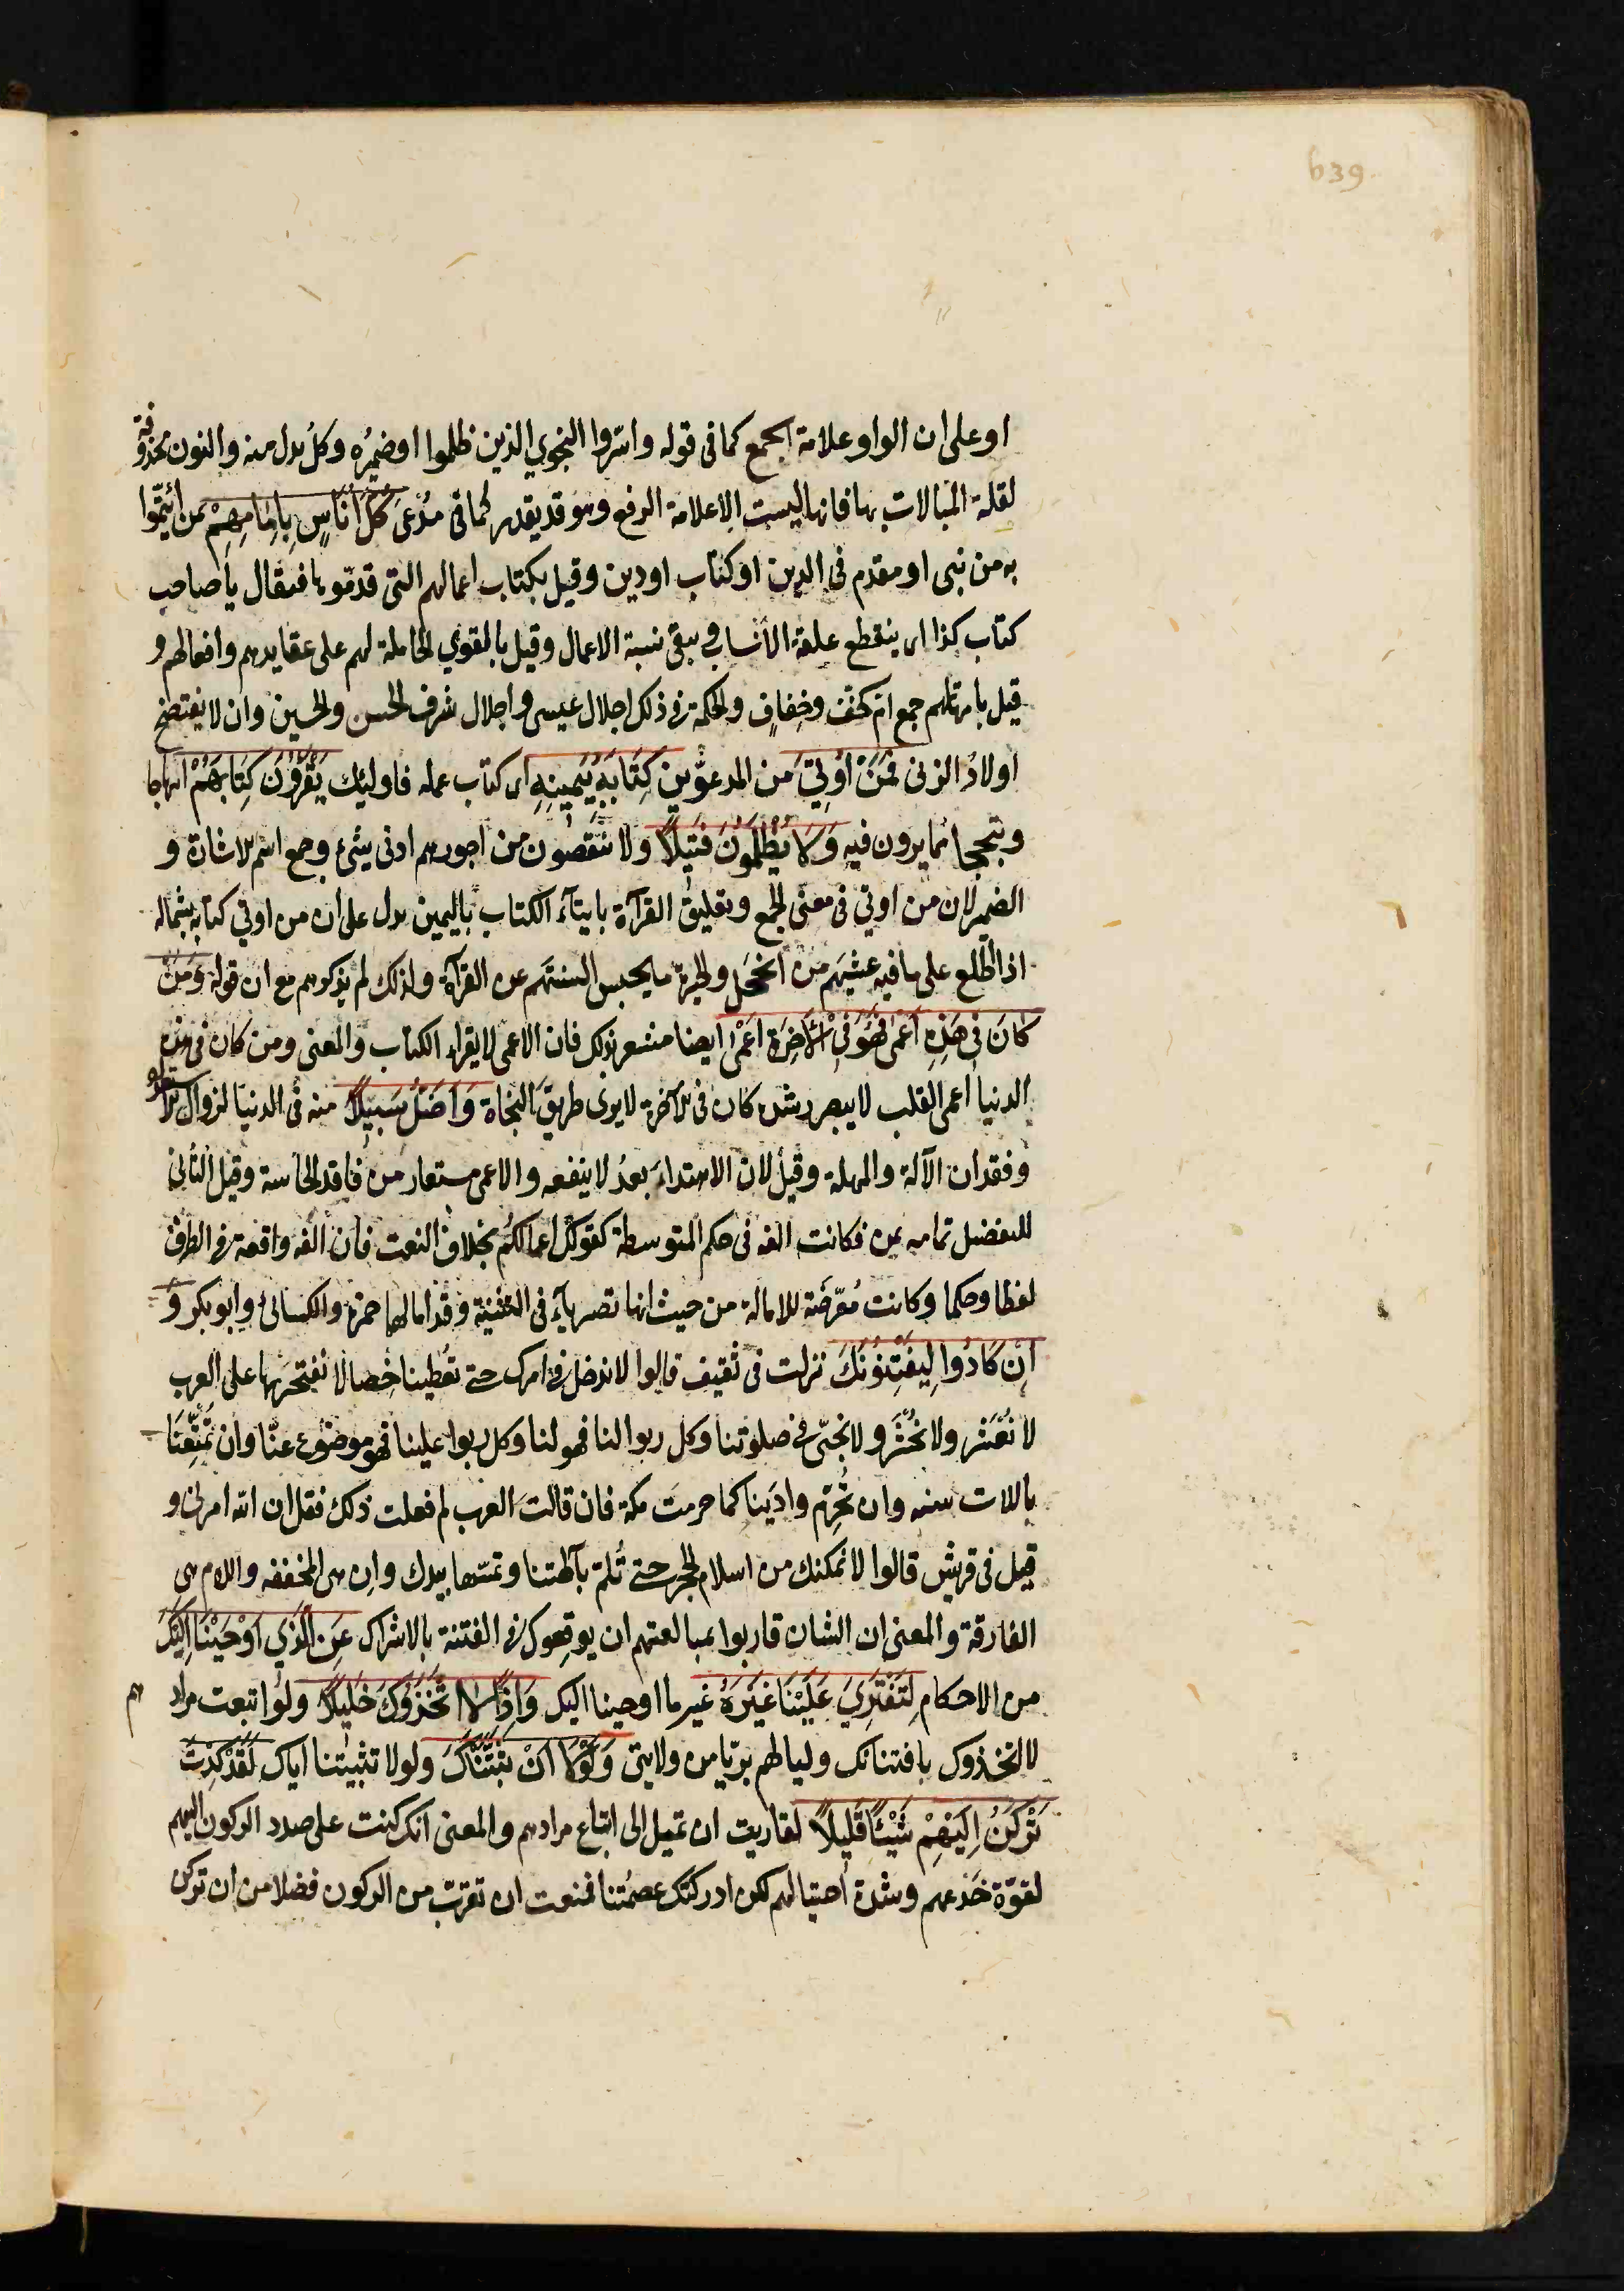 639
او على ان الواو علامة الجمع كما فى قوله واسرّوا النجوي الذين ظلموا اوضميُره وكلُ بدل منه والنون محذوفة
لقلة المبالات بها فانها ليست الاعلامة الرفع وهو قد يقدر كما فى يُدْعىَ كُلُّ اُنَاسٍ بِاِمَامِهِمْ بمن ائتمّوا
به من نبى او مقدم فى الدين او كتاب اودين وقيل بكتاب اعمالهم التى قدمّوها فيقال يا صاحب
كتاب كذا اى ينقطع علقة الانساب ويبقى نسبة الاعمال وقيل بالقوي الحاملة لهم على عقايدهم وافعالهم و
قيل بامهاتهم جمع امّ كخفّ وخِفافٍ والحكمة فى ذلك اجلال عيسى واجلال شرف الحسن والحسين وان لا يفتضح
اولادُ الزنى فَمَنْ اُوتِيَ من المدعوّين كِتَابَهُ بِيَمِينِهِ اى كتاب عمله فاوليك يَقْرَؤُنَ كِتَابَهُمْ ابتهاجا
وتبجحا بما يرون فيه وَلاَ يُظْلَمُونَ فَتِيلاً ولا ينقصون من اجورهم ادنى شئ وجمع اسم الاشارة و
الضمير لان من اوتي فى معنى الجمع وتعليق القرآءة بايتآء الكتاب باليمين يدل على ان من اوتي كتابه بشماله
اذا اطّلع على ما فيه غشيهم من الخجل والحيرة ما يحبس السنتهم عن القرآءة ولذلك لم يذكرهم مع ان قوله وَمَنْ
كَانَ فِي هَذِهِ اَعْمَى فَهُوَ فِي اْلآخِرَةِ اَعْمَى ايضا مشعر بذلك فان الاعمى لا يقراء الكتاب والمعنى ومن كان فى هذه
الدنيا اعمى القلب لا يبصر رشده كان فى الآخرة لا يرى طريق النجاة وَاَضَلُّ سَبِيلاً منه فى الدنيا لزوال الاستعداد
وفقدان الآلة والمهلة وقيل لان الاهتداءَ بعدُ لا ينفعه والاعمى مستعار من فاقد الحاسة وقيل الثانى
للتفضيل تمامه بمن فكانت الفه فى حكم المتوسطة كقولك اعمالكُم بخلاف النعت فان الفه واقعة فى الطرف
لفظا وحكما وكانت مُعرّضة للامالة من حيث انها تصير يآء فى التثنية وقد امالهما حمزة والكسائى وابو بكر وَ
اِنْ كَادُوا لِيَفْتِنُونَكَ نزلت فى ثقيف قالوا لا ندخل فى امرك حتى تعُطينا خِصالا نفتخر بها على العرب
لا نُعْشَر ولا نُحْشَر ولا نُجبّى فى صلوتنا وكل ربوا لنا فهو لنا وكل ربوا علينا فهو موضوع عنّا وان تُمتّعنَا
باللات سنه وان تُحرّم وادَينا كما حرمت مكة فان قالت العرب لم فعلت ذلك فقل ان الله امرنى و
قيل فى قريش قالوا لا نمكنك من استلام الحجر حتى تُلمّ بآلهتنا وتمسّها بيدك وان هى المخففه واللام هى
الفارقة والمعنى ان الشان قاربوا بمبالغتهم ان يوقعوك فى الفتنة بالاشراك عَنِ الَّذِي اَوْحَيْنَا اِلَيْكَ
من الاحكام لِتَفْتَرِيَ عَلَيْنَا غَيْرَهُ غير ما اوحينا اليك وَاِذًا لاَتَّخَذُوكَ خَلِيلاً ولو اتبعت مرادهم
لاتخذوك بافتنانك وليا لهم بريّا من ولايتى وَلَوْلاَ اَنْ ثَبَّتْنَاكَ ولولا تثبيتنا اياك لَقَدْ كِدْتَ
تَرْكَنُ اِلَيْهِمْ شَيْئًا قَلِيلاً لقاربت ان تميل الى اتباع مرادهم والمعنى انك كنت على صدد الركون اليهم
لقوّة خَدعهم وشدة احتيالهم لكن ادركتك عصمتنا فمنعت ان تقرب من الركون فضلا من ان تركن